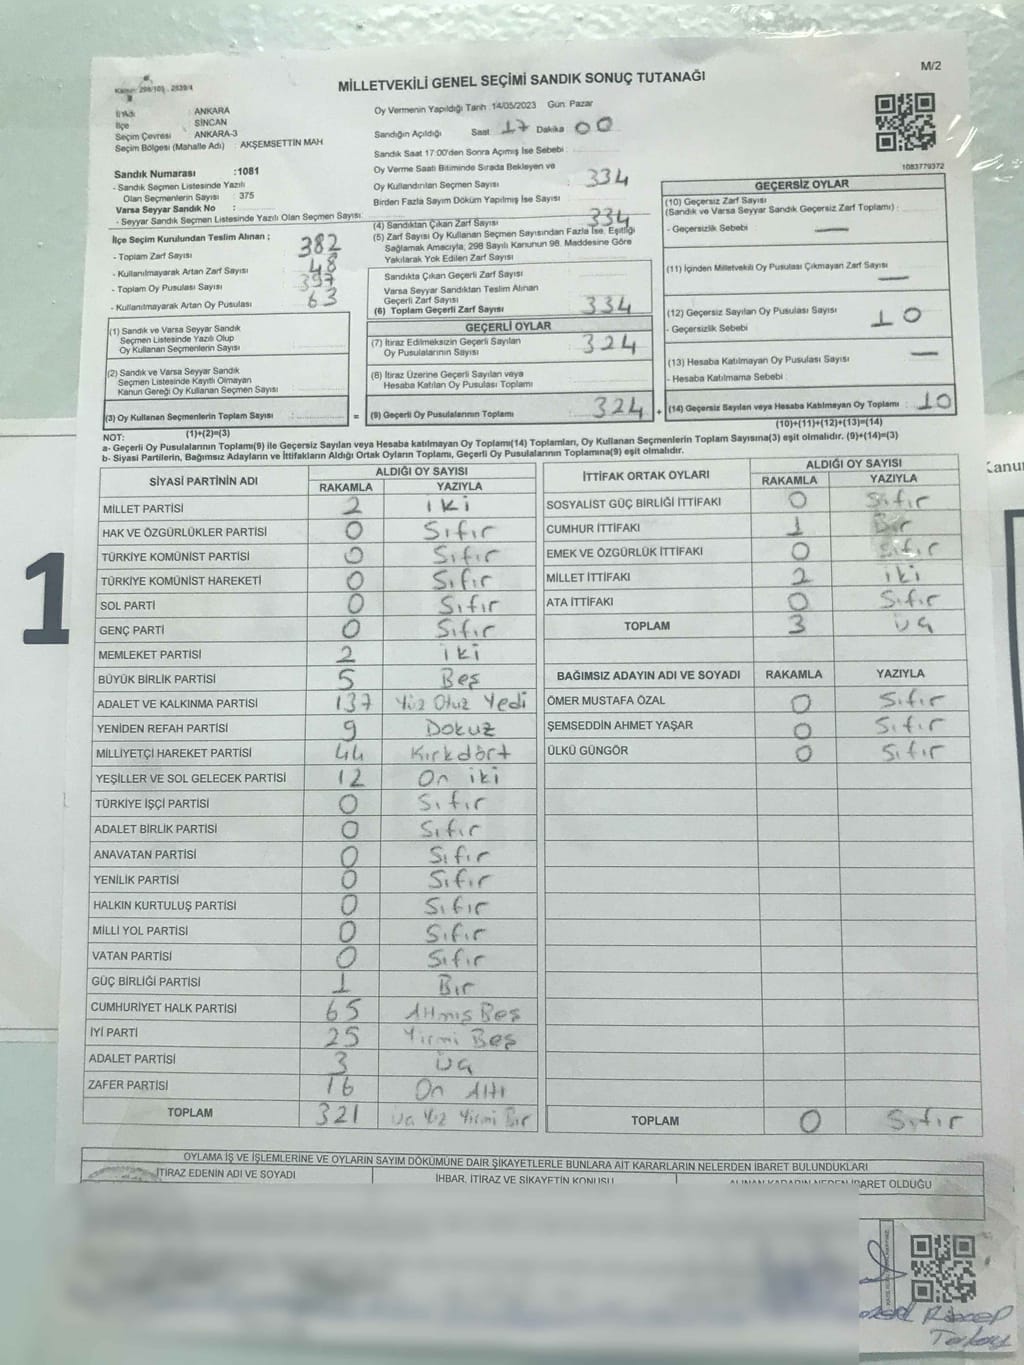 M/2
Kanun: 298/105 , 2839/4
MİLLETVEKİLİ GENEL SEÇİMİ SANDIK SONUÇ TUTANAĞI
İl Adı : ANKARA
İlçe : SİNCAN
Seçim Çevresi : ANKARA-3
Seçim Bölgesi (Mahalle Adı) : AKŞEMSETTİN MAH
Sandık Numarası :1081
- Sandık Seçmen Listesinde Yazılı
Olan Seçmenlerin Sayısı : 375
Varsa Seyyar Sandık No :
- Seyyar Sandık Seçmen Listesinde Yazılı Olan Seçmen Sayısı:
Oy Vermenin Yapıldığı Tarih :14/05/2023 Gün: Pazar
Sandığın Açıldığı Saat 17 Dakika 00
Sandık Saat 17:00'den Sonra Açımış İse Sebebi :
Oy Verme Saati Bitiminde Sırada Bekleyen ve
Oy Kullandırılan Seçmen Sayısı : 334
Birden Fazla Sayım Döküm Yapılmış İse Sayısı :
1083779372
İlçe Seçim Kurulundan Teslim Alınan ;
- Toplam Zarf Sayısı : 382
- Kullanılmayarak Artan Zarf Sayısı : 48
- Toplam Oy Pusulası Sayısı : 397
- Kullanılmayarak Artan Oy Pusulası : 63
(1) Sandık ve Varsa Seyyar Sandık
Seçmen Listesinde Yazılı Olup
Oy Kullanan Seçmenlerin Sayısı
(2) Sandık ve Varsa Seyyar Sandık
Seçmen Listesinde Kayıtlı Olmayan
Kanun Gereği Oy Kullanan Seçmen Sayısı
(3) Oy Kullanan Seçmenlerin Toplam Sayısı :
(1)+(2)=(3)
(4) Sandıktan Çıkan Zarf Sayısı : 334
(5) Zarf Sayısı Oy Kullanan Seçmen Sayısından Fazla İse, Eşitliği
Sağlamak Amacıyla; 298 Sayılı Kanunun 98. Maddesine Göre
Yakılarak Yok Edilen Zarf Sayısı
Sandıkta Çıkan Geçerli Zarf Sayısı :
Varsa Seyyar Sandıktan Teslim Alınan
Geçerli Zarf Sayısı
(6) Toplam Geçerli Zarf Sayısı : 334
GEÇERLİ OYLAR
(7) İtiraz Edilmeksizin Geçerli Sayılan
Oy Pusulalarının Sayısı : 324
(8) İtiraz Üzerine Geçerli Sayılan veya
Hesaba Katılan Oy Pusulası Toplamı
= (9) Geçerli Oy Pusulalarının Toplamı : 324
GEÇERSİZ OYLAR
(10) Geçersiz Zarf Sayısı
(Sandık ve Varsa Seyyar Sandık Geçersiz Zarf Toplamı) :
- Geçersizlik Sebebi : —
(11) İçinden Milletvekili Oy Pusulası Çıkmayan Zarf Sayısı : —
(12) Geçersiz Sayılan Oy Pusulası Sayısı : 10
- Geçersizlik Sebebi
(13) Hesaba Katılmayan Oy Pusulası Sayısı : —
- Hesaba Katılmama Sebebi :
+ (14) Geçersiz Sayılan veya Hesaba Katılmayan Oy Toplamı : 10
(10)+(11)+(12)+(13)=(14)
NOT:
a- Geçerli Oy Pusulalarının Toplamı(9) ile Geçersiz Sayılan veya Hesaba katılmayan Oy Toplamı(14) Toplamları, Oy Kullanan Seçmenlerin Toplam Sayısına(3) eşit olmalıdır. (9)+(14)=(3)
b- Siyasi Partilerin, Bağımsız Adayların ve İttifakların Aldığı Ortak Oyların Toplamı, Geçerli Oy Pusulalarının Toplamına(9) eşit olmalıdır.
SİYASİ PARTİNİN ADI ALDIĞI OY SAYISI
RAKAMLA YAZIYLA
MİLLET PARTİSİ 2 iki
HAK VE ÖZGÜRLÜKLER PARTİSİ 0 Sıfır
TÜRKİYE KOMÜNİST PARTİSİ 0 Sıfır
TÜRKİYE KOMÜNİST HAREKETİ 0 Sıfır
SOL PARTİ 0 Sıfır
GENÇ PARTİ 0 Sıfır
MEMLEKET PARTİSİ 2 iki
BÜYÜK BİRLİK PARTİSİ 5 Beş
ADALET VE KALKINMA PARTİSİ 137 Yüz Otuz Yedi
YENİDEN REFAH PARTİSİ 9 Dokuz
MİLLİYETÇİ HAREKET PARTİSİ 44 Kırkdört
YEŞİLLER VE SOL GELECEK PARTİSİ 12 On iki
TÜRKİYE İŞÇİ PARTİSİ 0 Sıfır
ADALET BİRLİK PARTİSİ 0 Sıfır
ANAVATAN PARTİSİ 0 Sıfır
YENİLİK PARTİSİ 0 Sıfır
HALKIN KURTULUŞ PARTİSİ 0 Sıfır
MİLLİ YOL PARTİSİ 0 Sıfır
VATAN PARTİSİ 0 Sıfır
GÜÇ BİRLİĞİ PARTİSİ 1 Bir
CUMHURİYET HALK PARTİSİ 65 Altmış Beş
İYİ PARTİ 25 Yirmi Beş
ADALET PARTİSİ 3 Üç
ZAFER PARTİSİ 16 On Altı
TOPLAM 321 Üç Yüz Yirmi Bir
İTTİFAK ORTAK OYLARI ALDIĞI OY SAYISI
RAKAMLA YAZIYLA
SOSYALİST GÜÇ BİRLİĞİ İTTİFAKI 0 Sıfır
CUMHUR İTTİFAKI 1 Bir
EMEK VE ÖZGÜRLÜK İTTİFAKI 0 Sıfır
MİLLET İTTİFAKI 2 iki
ATA İTTİFAKI 0 Sıfır
TOPLAM 3 Üç
BAĞIMSIZ ADAYIN ADI VE SOYADI RAKAMLA YAZIYLA
ÖMER MUSTAFA ÖZAL 0 Sıfır
ŞEMSEDDİN AHMET YAŞAR 0 Sıfır
ÜLKÜ GÜNGÖR 0 Sıfır
TOPLAM 0 Sıfır
OYLAMA İŞ VE İŞLEMLERİNE VE OYLARIN SAYIM DÖKÜMÜNE DAİR ŞİKAYETLERLE BUNLARA AİT KARARLARIN NELERDEN İBARET BULUNDUKLARI
İTİRAZ EDENİN ADI VE SOYADI
İHBAR, İTİRAZ VE ŞİKAYETİN KONUSU
ALINAN KARARIN NEDEN İBARET OLDUĞU
1
Kanu